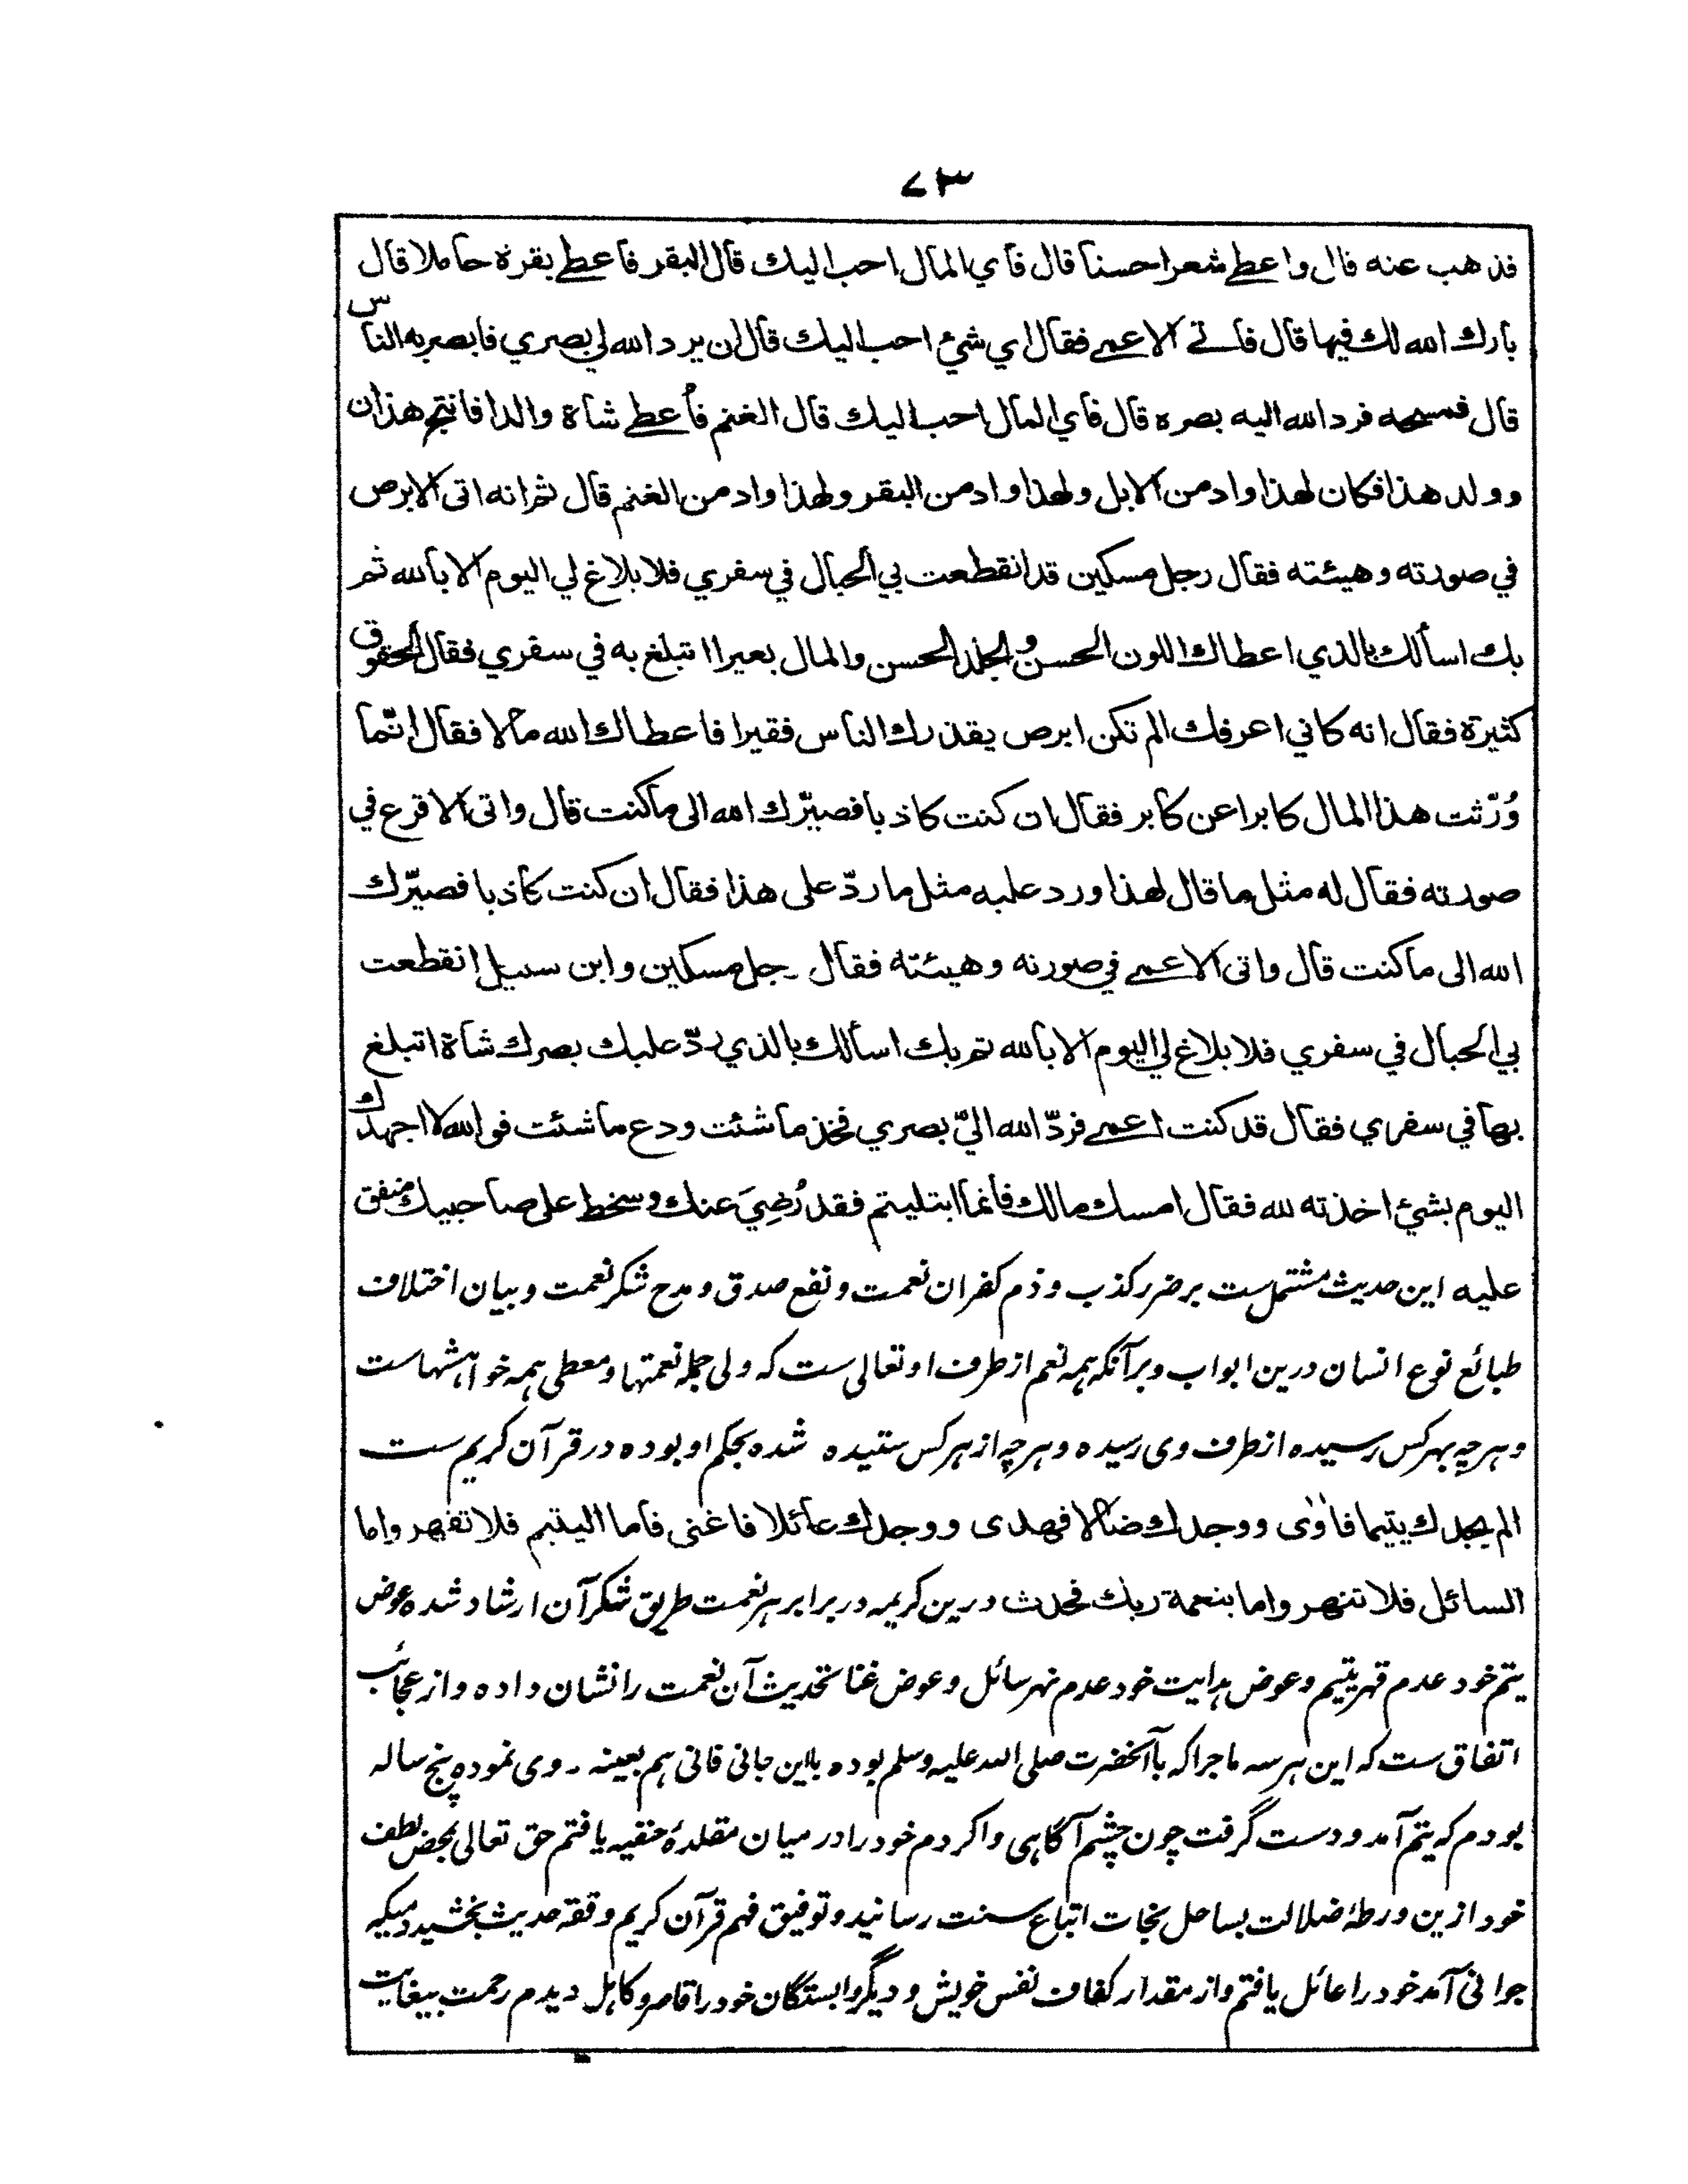 ۷۳
فذهب عنه قال واعطے شعرا حسنا قال فاي المال احب اليك قال البقر فاعطے بقرة حاملا قال
بارك الله لك فيها قال فاتے الاعمے فقال اي شئ احب اليك قال ان يرد الله لي بصري فابصر به الناس
قال فمسحه فرد الله اليه بصره قال فاي المال احب اليك قال الغنم فأعطے شاة والدا فانتج هذان
وولد هذا فكان لهذا واد من الابل ولهذا واد من البقر ولهذا واد من الغنم قال ثم انه اتى الابرص
في صورته وهيئته فقال رجل مسكين قد انقطعت بي الحبال في سفري فلا بلاغ لي اليوم الا بالله ثم
بك اسألك بالذي اعطاك اللون الحسن والجلد الحسن والمال بعيرا اتبلغ به في سفري فقال الحقوق
كثيرة فقال انه كاني اعرفك الم تكن ابرص يقذرك الناس فقيرا فاعطاك الله مالا فقال انّما
وُرّثت هذا المال كابرا عن كابر فقال ان كنت كاذبا فصيّرك الله الى ماكنت قال واتى الاقرع في
صورته فقال له مثل ما قال لهذا ورد عليه مثل ما ردّ على هذا فقال ان كنت كاذبا فصيّرك
الله الى ماكنت قال واتى الاعمے في صورته وهيئته فقال رجل مسكين وابن سبيل انقطعت
بي الحبال في سفري فلا بلاغ لي اليوم الا بالله ثم بك اسألك بالذي ردّ عليك بصرك شاة اتبلغ
بها في سفري فقال قد كنت اعمے فردّ الله اليّ بصري فخذ ما شئت ودع ما شئت فو الله لا اجهدك
اليوم بشئ اخذته لله فقال امسك مالك فانما ابتليتم فقد رُضِيَ عنك وسخط على صاحبيك متفق
عليه این حدیث مشتمل ست بر ضرر کذب و ذم کفران نعمت و نفع صدق و مدح شکر نعمت و بیان اختلاف
طبائع نوع انسان درین ابواب و برآنکه همه نعم از طرف او تعالی ست که ولی جمله نعمتها و معطی همه خواهشهاست
و هرچه بهرکس رسیده از طرف وی رسیده و هرچه از هرکس ستیده شده بحکم او بوده در قرآن کریم ست
الم يجدك يتيما فاوٰى ووجدك ضالا فهدى ووجدك عائلا فاغنى فاما اليتيم فلا تقهر واما
السائل فلا تنهر واما بنعمة ربك فحدث درین کریمه در برابر هر نعمت طریق شکر آن ارشاد شده عوض
یتم خود عدم قهر یتیم و عوض هدایت خود عدم نهر سائل و عوض غنا تحدیث آن نعمت را نشان داده و از عجائب
اتفاق ست که این هر سه ماجرا که با آنحضرت صلی الله علیه وسلم بوده باین جانی فانی هم بعینه ـ وی نموده پنج ساله
بودم که یتم آمد و دست گرفت چون چشم آگاهی وا کردم خود را در میان مقلدهٔ حنفیه یافتم حق تعالی بمحض لطف
خود ازین ورطهٔ ضلالت بساحل نجات اتباع سنت رسانید و توفیق فهم قرآن کریم وفقه حدیث بخشید دمیکه
جوانی آمد خود را عائل یافتم واز مقدار کفاف نفس خویش و دیگر وابستگان خود را قاصر و کاہل دیدم رحمت بیغایت